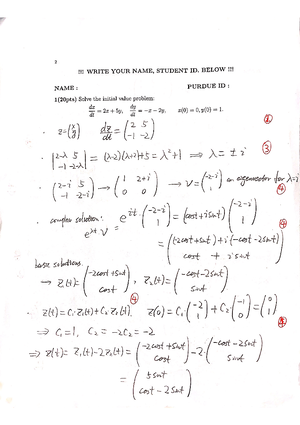 2
!!! WRITE YOUR NAME, STUDENT ID. BELOW !!!
NAME : PURDUE ID :
1(20pts) Solve the initial value problem:
dx/dt = 2x + 5y, dy/dt = −x − 2y, x(0) = 0, y(0) = 1.
· z = (x y) dz/dt = (2 5 -1 -2) ②
· |2-λ 5 -1 -2-λ| = (λ-2)(λ+2)+5 = λ²+1 ⇒ λ = ± i ③
· (2-i 5 -1 -2-i) → (1 2+i 0 0) → V = (-2-i 1) an eigenvector for λ=i ④
· complex solution: e^{λt} V = e^{it} (-2-i 1) = (cost + i sint) (-2-i 1) ④
= ((-2cost + sint) + i (-cost - 2sint) cost + i sint)
basic solutions.
→ Z₁(t) = (-2cost + sint cost), Z₂(t) = (-cost - 2sint sint)
④
· Z(t) = C₁ Z₁(t) + C₂ Z₂(t). Z(0) = C₁ (-2 1) + C₂ (-1 0) = (0 1) ③
⇒ C₁ = 1, C₂ = -2C₁ = -2
⇒ Z(t) = Z₁(t) - 2Z₂(t) = (-2cost + sint cost) - 2· (-cost - 2sint sint)
= (5sint cost - 2sint)